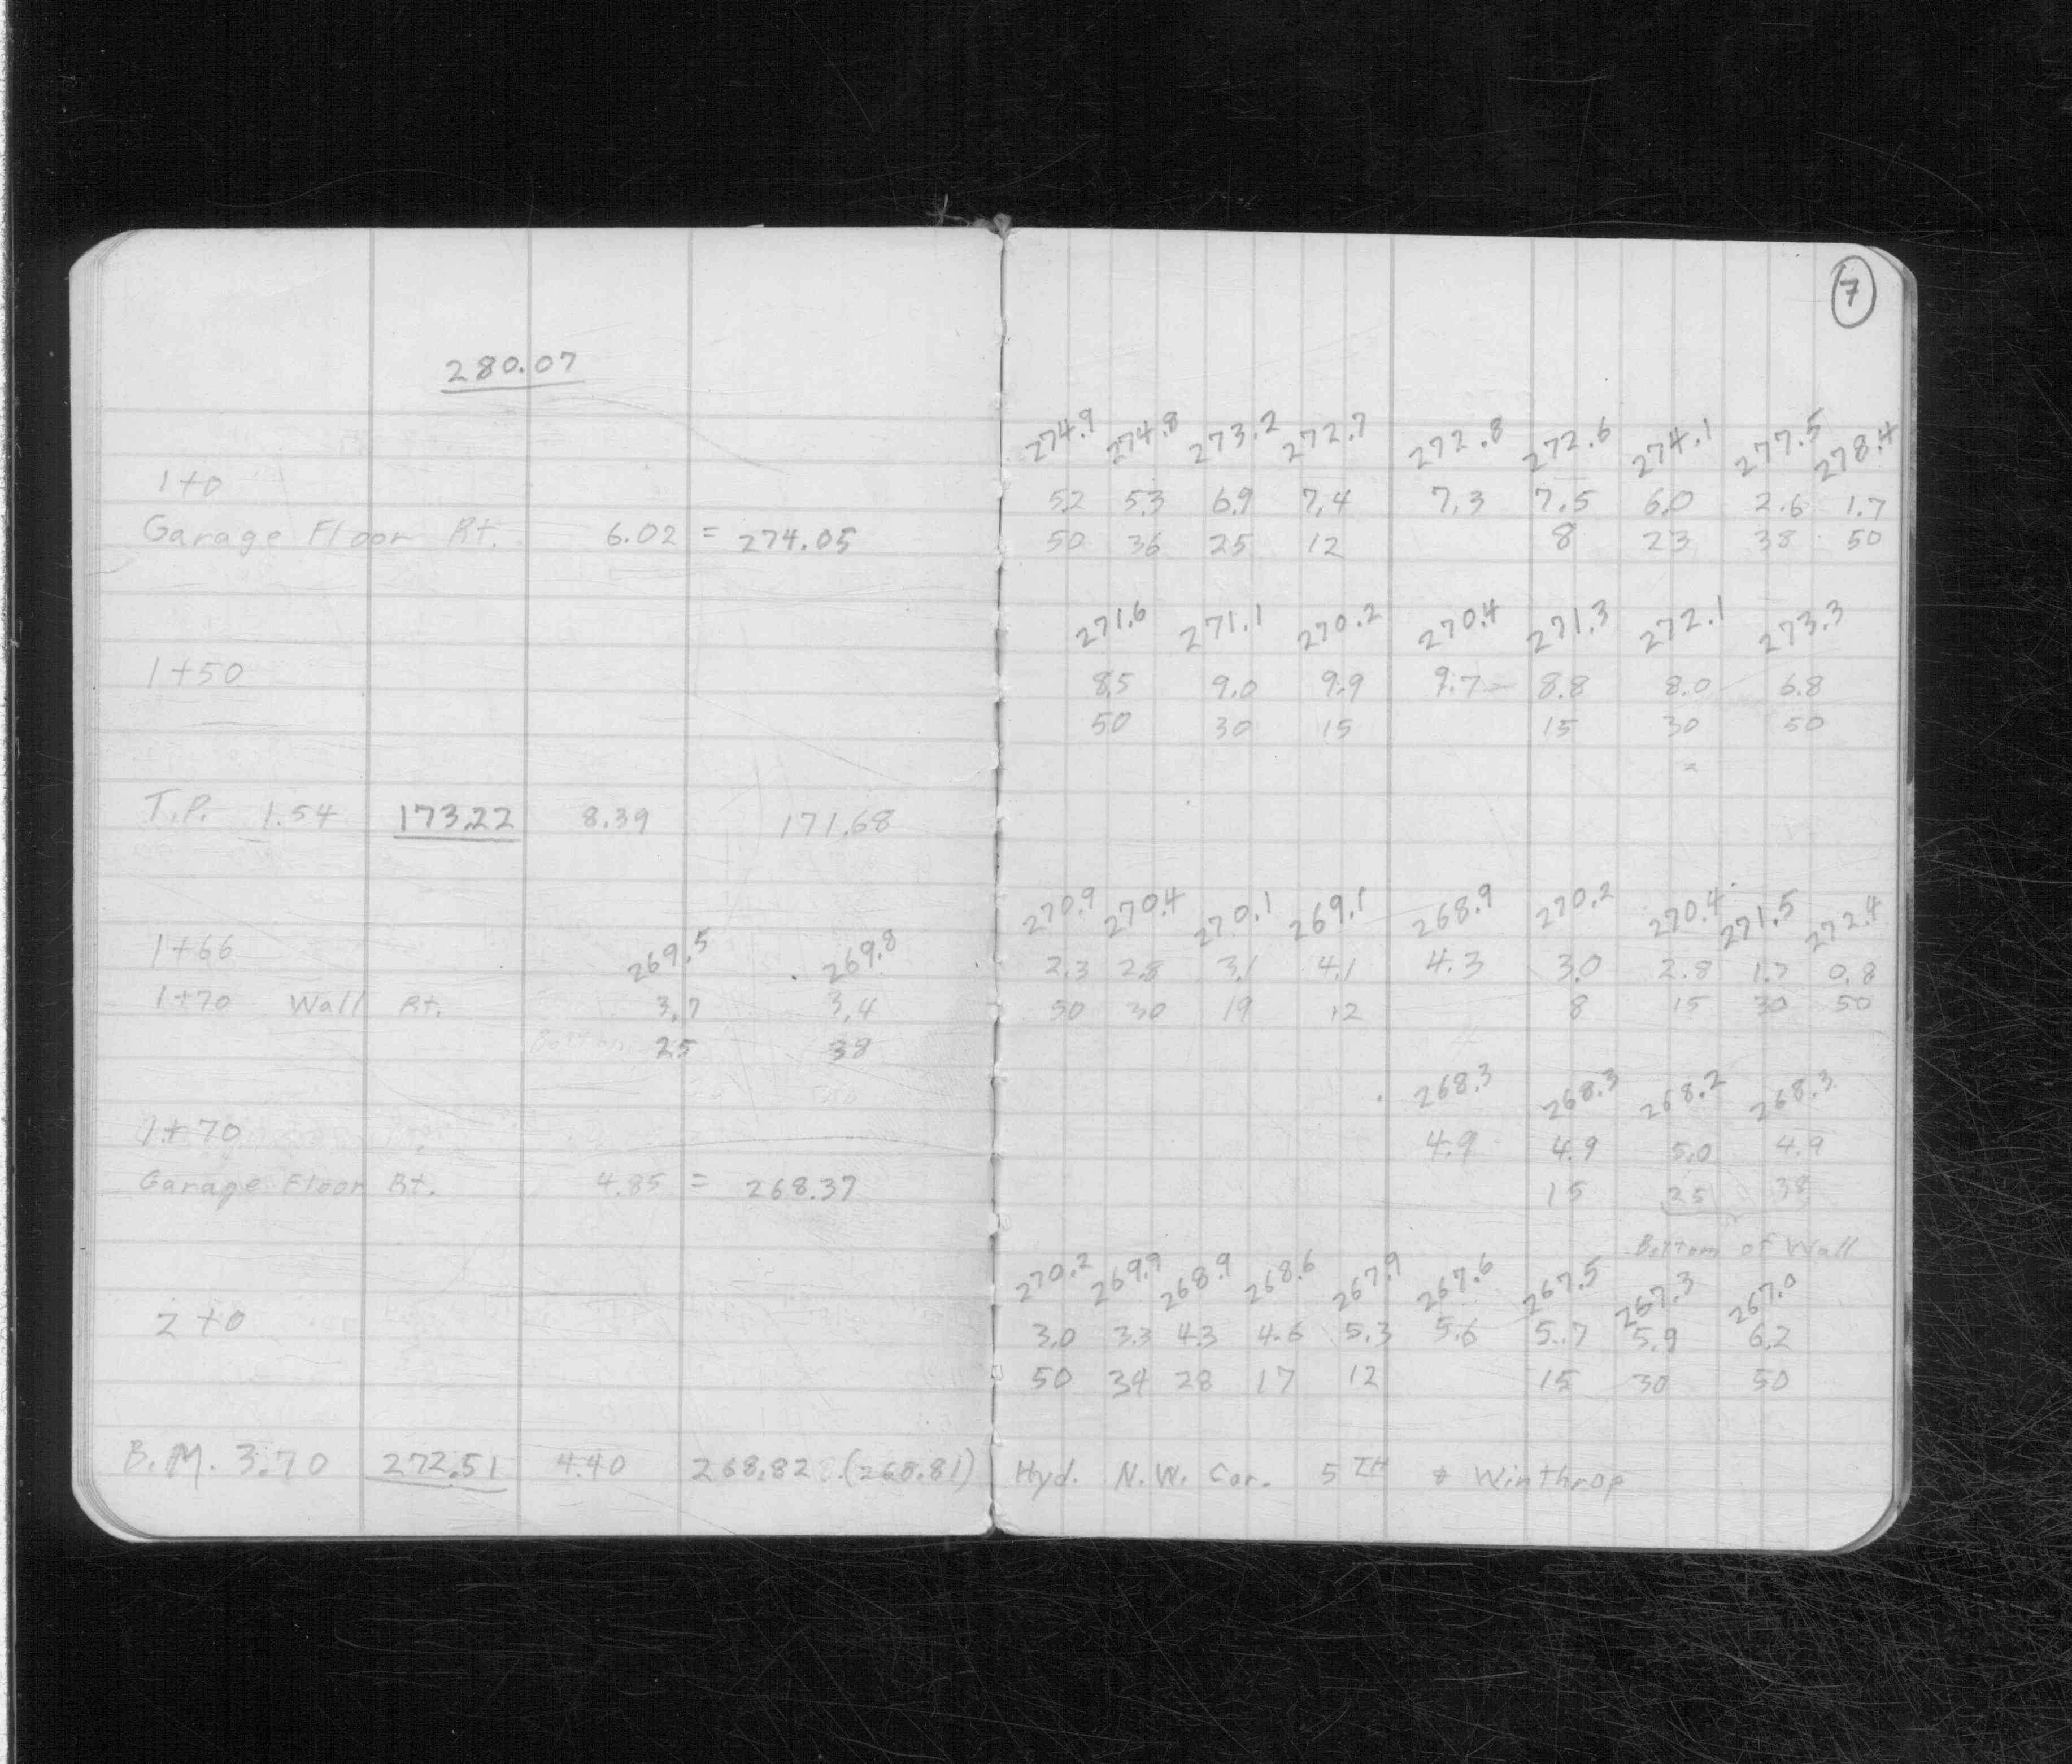 280.07
1+0
Garage Floor Rt. 6.02 = 274.05
1+50
T.P. 1.54 173.22 8.39 171.68
269.5 269.8
1+66
1+70 Wall Rt. 3.7 3.4
Bottom 25 38
1+70
Garage Floor Rt. 4.85 = 268.37
2+0
B.M. 3.70 272.51 4.40 268.82 (268.81)
7
274.9 274.8 273.2 272.7 272.8 272.6 274.1 277.5 278.4
5.2 5.3 6.9 7.4 7.3 7.5 6.0 2.6 1.7
50 36 25 12 8 23 38 50
271.6 271.1 270.2 270.4 271.3 272.1 273.3
8.5 9.0 9.9 9.7 8.8 8.0 6.8
50 30 15 15 30 50
270.9 270.4 270.1 269.1 268.9 270.2 270.4 271.5 272.4
2.3 2.8 3.1 4.1 4.3 3.0 2.8 1.7 0.8
50 30 19 12 8 15 30 50
268.3 268.3 268.2 268.3
4.9 4.9 5.0 4.9
15 25 38
Bottom of Wall
270.2 269.9 268.9 268.6 267.9 267.6 267.5 267.3 267.0
3.0 3.3 4.3 4.6 5.3 5.6 5.7 5.9 6.2
50 34 28 17 12 15 30 50
Hyd. N.W. Cor. 5TH & Winthrop